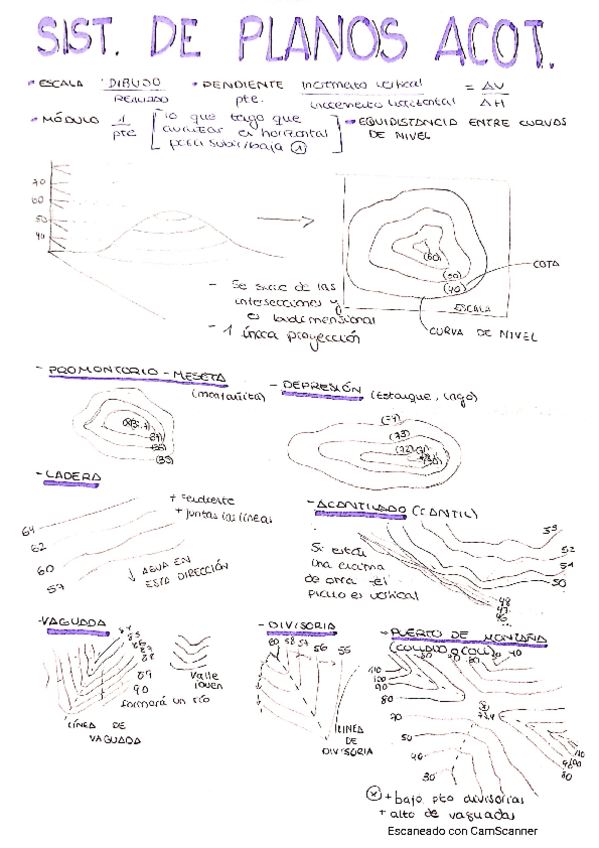 SIST. DE PLANOS ACOT.
• ESCALA DIBUJO
REALIDAD
• PENDIENTE incremento vertical = ΔV
pte. incremento horizontal ΔH
• MÓDULO 1
pte
lo que tengo que
avanzar en horizontal
para subir/baja 1
• EQUIDISTANCIA ENTRE CURVAS
DE NIVEL
70
60
50
40
(60)
(50)
(40)
COTA
ESCALA
CURVA DE NIVEL
- Se surge de las
intersecciones y
es bidimensional
- 1 única proyección
- PROMONTORIO - MESETA
(montañita)
- DEPRESIÓN (Estanque, lago)
(74)
(73)
(33)
- LADERA
+ Pendiente
+ juntas las líneas
64
62
60
57
↓ AGUA EN
ESTA DIRECCIÓN
- ACANTILADO (CANTIL)
Si están
una encima
de otra el
plano es vertical
53
52
51
50
48
47
46
- VAGUADA
89
90
formará un río
Valle
joven
LÍNEA DE
VAGUADA
- DIVISORIA
60 58 57 56 55
LINEA
DE
DIVISORIA
- PUERTO DE MONTAÑA
(COLLADO o COLL)
110
100
90
80
70
50
40
30
80
ⓧ + bajo pto divisorias
+ alto de vaguadas
Escaneado con CamScanner